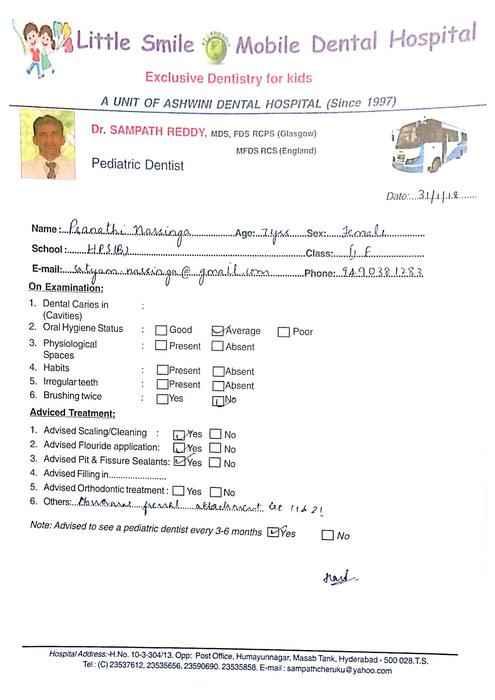 Little Smile Mobile Dental Hospital
Exclusive Dentistry for kids
A UNIT OF ASHWINI DENTAL HOSPITAL (Since 1997)
Dr. SAMPATH REDDY, MDS, FDS RCPS (Glasgow)
MFDS RCS (England)
Pediatric Dentist
Date: 31/1/18
Name: Pranathi Narsinga Age: 7yrs Sex: Female
School: HPS(B) Class: II F
E-mail: satyam.narsinga@gmail.com Phone: 9490381283
On Examination:
1. Dental Caries in :
(Cavities)
2. Oral Hygiene Status : Good Average Poor
3. Physiological : Present Absent
Spaces
4. Habits : Present Absent
5. Irregular teeth : Present Absent
6. Brushing twice : Yes No
Adviced Treatment:
1. Advised Scaling/Cleaning : Yes No
2. Advised Flouride application: Yes No
3. Advised Pit & Fissure Sealants: Yes No
4. Advised Filling in
5. Advised Orthodontic treatment: Yes No
6. Others: frenal attachment
Note: Advised to see a pediatric dentist every 3-6 months Yes No
Hospital Address:-H.No. 10-3-304/13. Opp: Post Office, Humayunnagar, Masab Tank, Hyderabad - 500 028.T.S.
Tel : (C) 23537612, 23535656, 23590690. 23535858. E-mail : sampathcheruku@yahoo.com